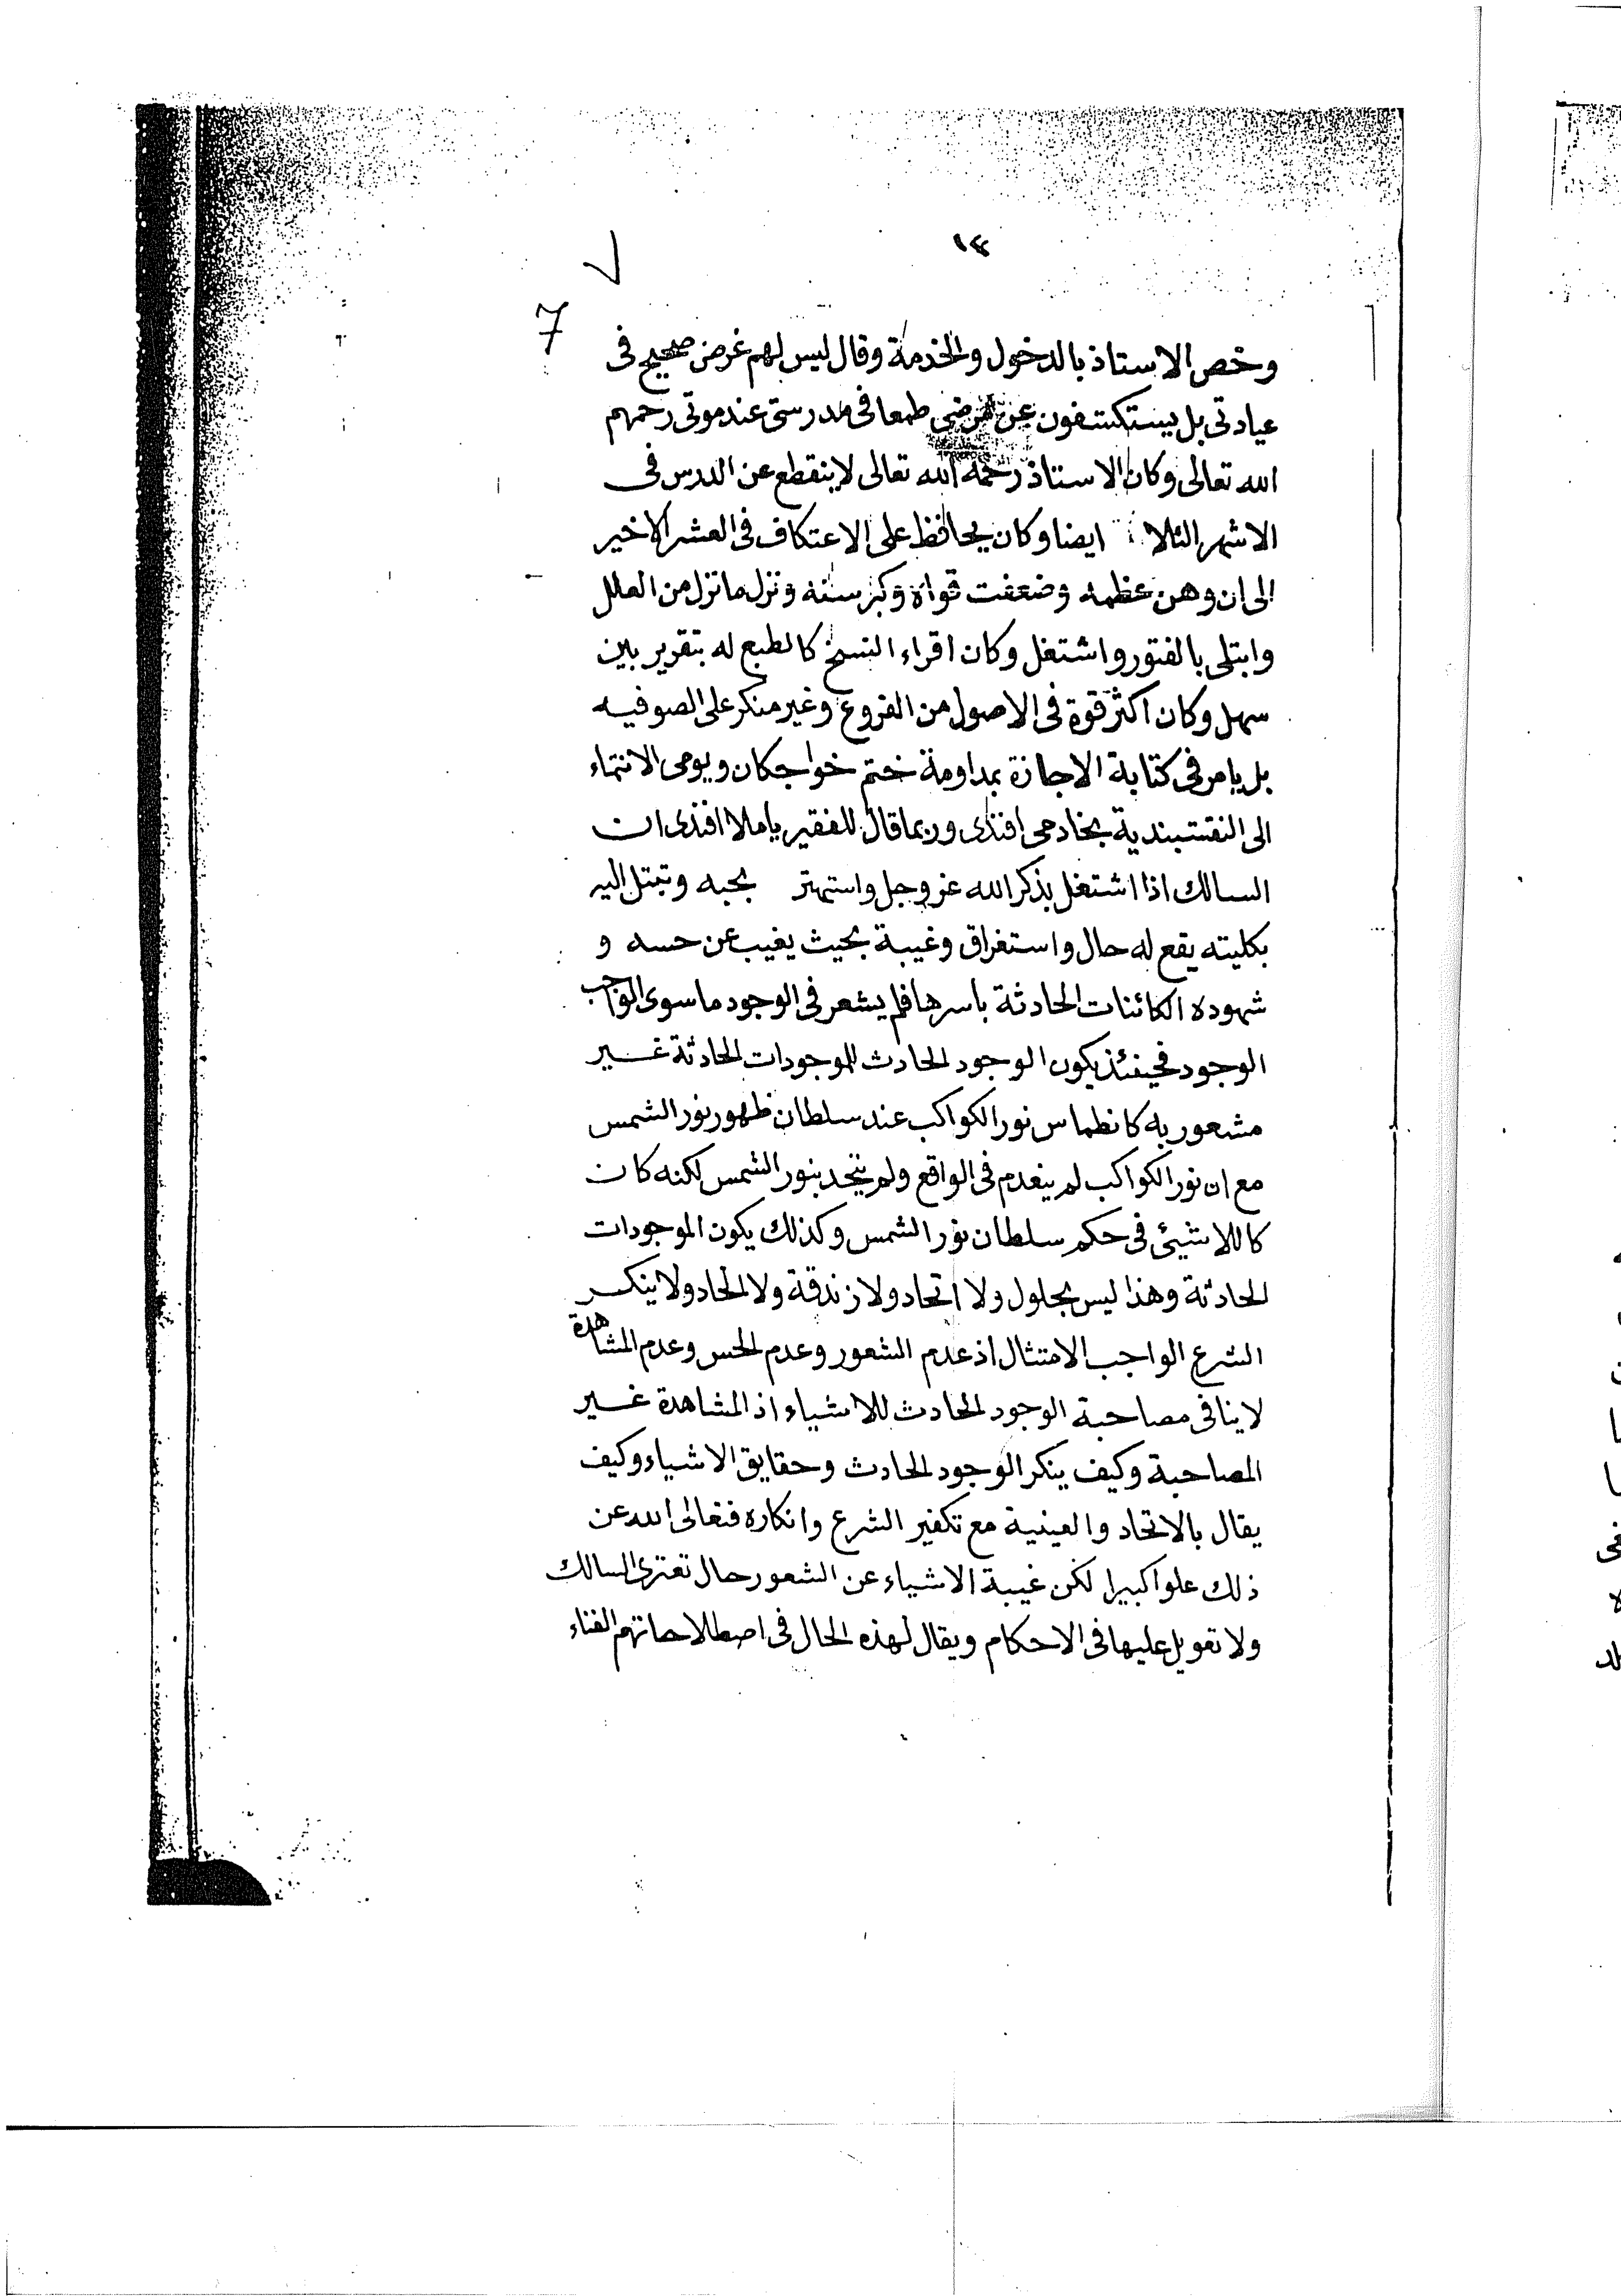 ١٣
٧
7
وخص الاستاذ بالدخول والخدمة وقال ليس لهم غرض صحيح فى
عيادتى بل يستكشفون عن مرضى طمعا فى مدرستى عند موتى رحمهم
الله تعالى وكان الاستاذ رحمه الله تعالى لا ينقطع عن الدرس فى
الاشهر الثلا ايضا وكان يحافظ على الاعتكاف فى العشر الاخير
الى ان وهن عظمه وضعفت قواه وكبر سنه ونزل ما نزل من العلل
وابتلى بالفتور واشتغل وكان اقراء النسخ كالطبع له بتقرير بين
سهل وكان اكثر قوة فى الاصول من الفروع وغير منكر على الصوفيه
بل يامر فى كتابة الاجازة بمداومة ختم خواجكان ويومى الانتماء
الى النقشبندية بخادمى افندى وربما قال للفقير يا ملا افندى ان
السالك اذا اشتغل بذكر الله عز وجل واستهتر بحبه وتبتل اليه
بكليته يقع له حال واستغراق وغيبة بحيث يغيب عن حسه و
شهوده الكائنات الحادثة باسرها فلم يشعر فى الوجود ما سوى الواجب
الوجود فحينئذ يكون الوجود الحادث للموجودات الحادثة غير
مشعور به كانطماس نور الكواكب عند سلطان ظهور نور الشمس
مع ان نور الكواكب لم ينعدم فى الواقع ولم يتحد بنور الشمس لكنه كان
كاللاشيئ فى حكم سلطان نور الشمس وكذلك يكون الموجودات
الحادثة وهذا ليس بحلول ولا اتحاد ولا زندقة ولا الحاد ولا ينكر
الشرع الواجب الامتثال اذ عدم الشعور وعدم الحس وعدم المشاهدة
لا ينافى مصاحبة الوجود الحادث للاشياء اذ المشاهدة غير
المصاحبة وكيف ينكر الوجود الحادث وحقايق الاشياء وكيف
يقال بالاتحاد والعينية مع تكفير الشرع وانكاره فتعالى الله عن
ذلك علوا كبيرا لكن غيبة الاشياء عن الشعور حال تعترى السالك
ولا تعويل عليها فى الاحكام ويقال لهذه الحال فى اصطلاحاتهم الفناء